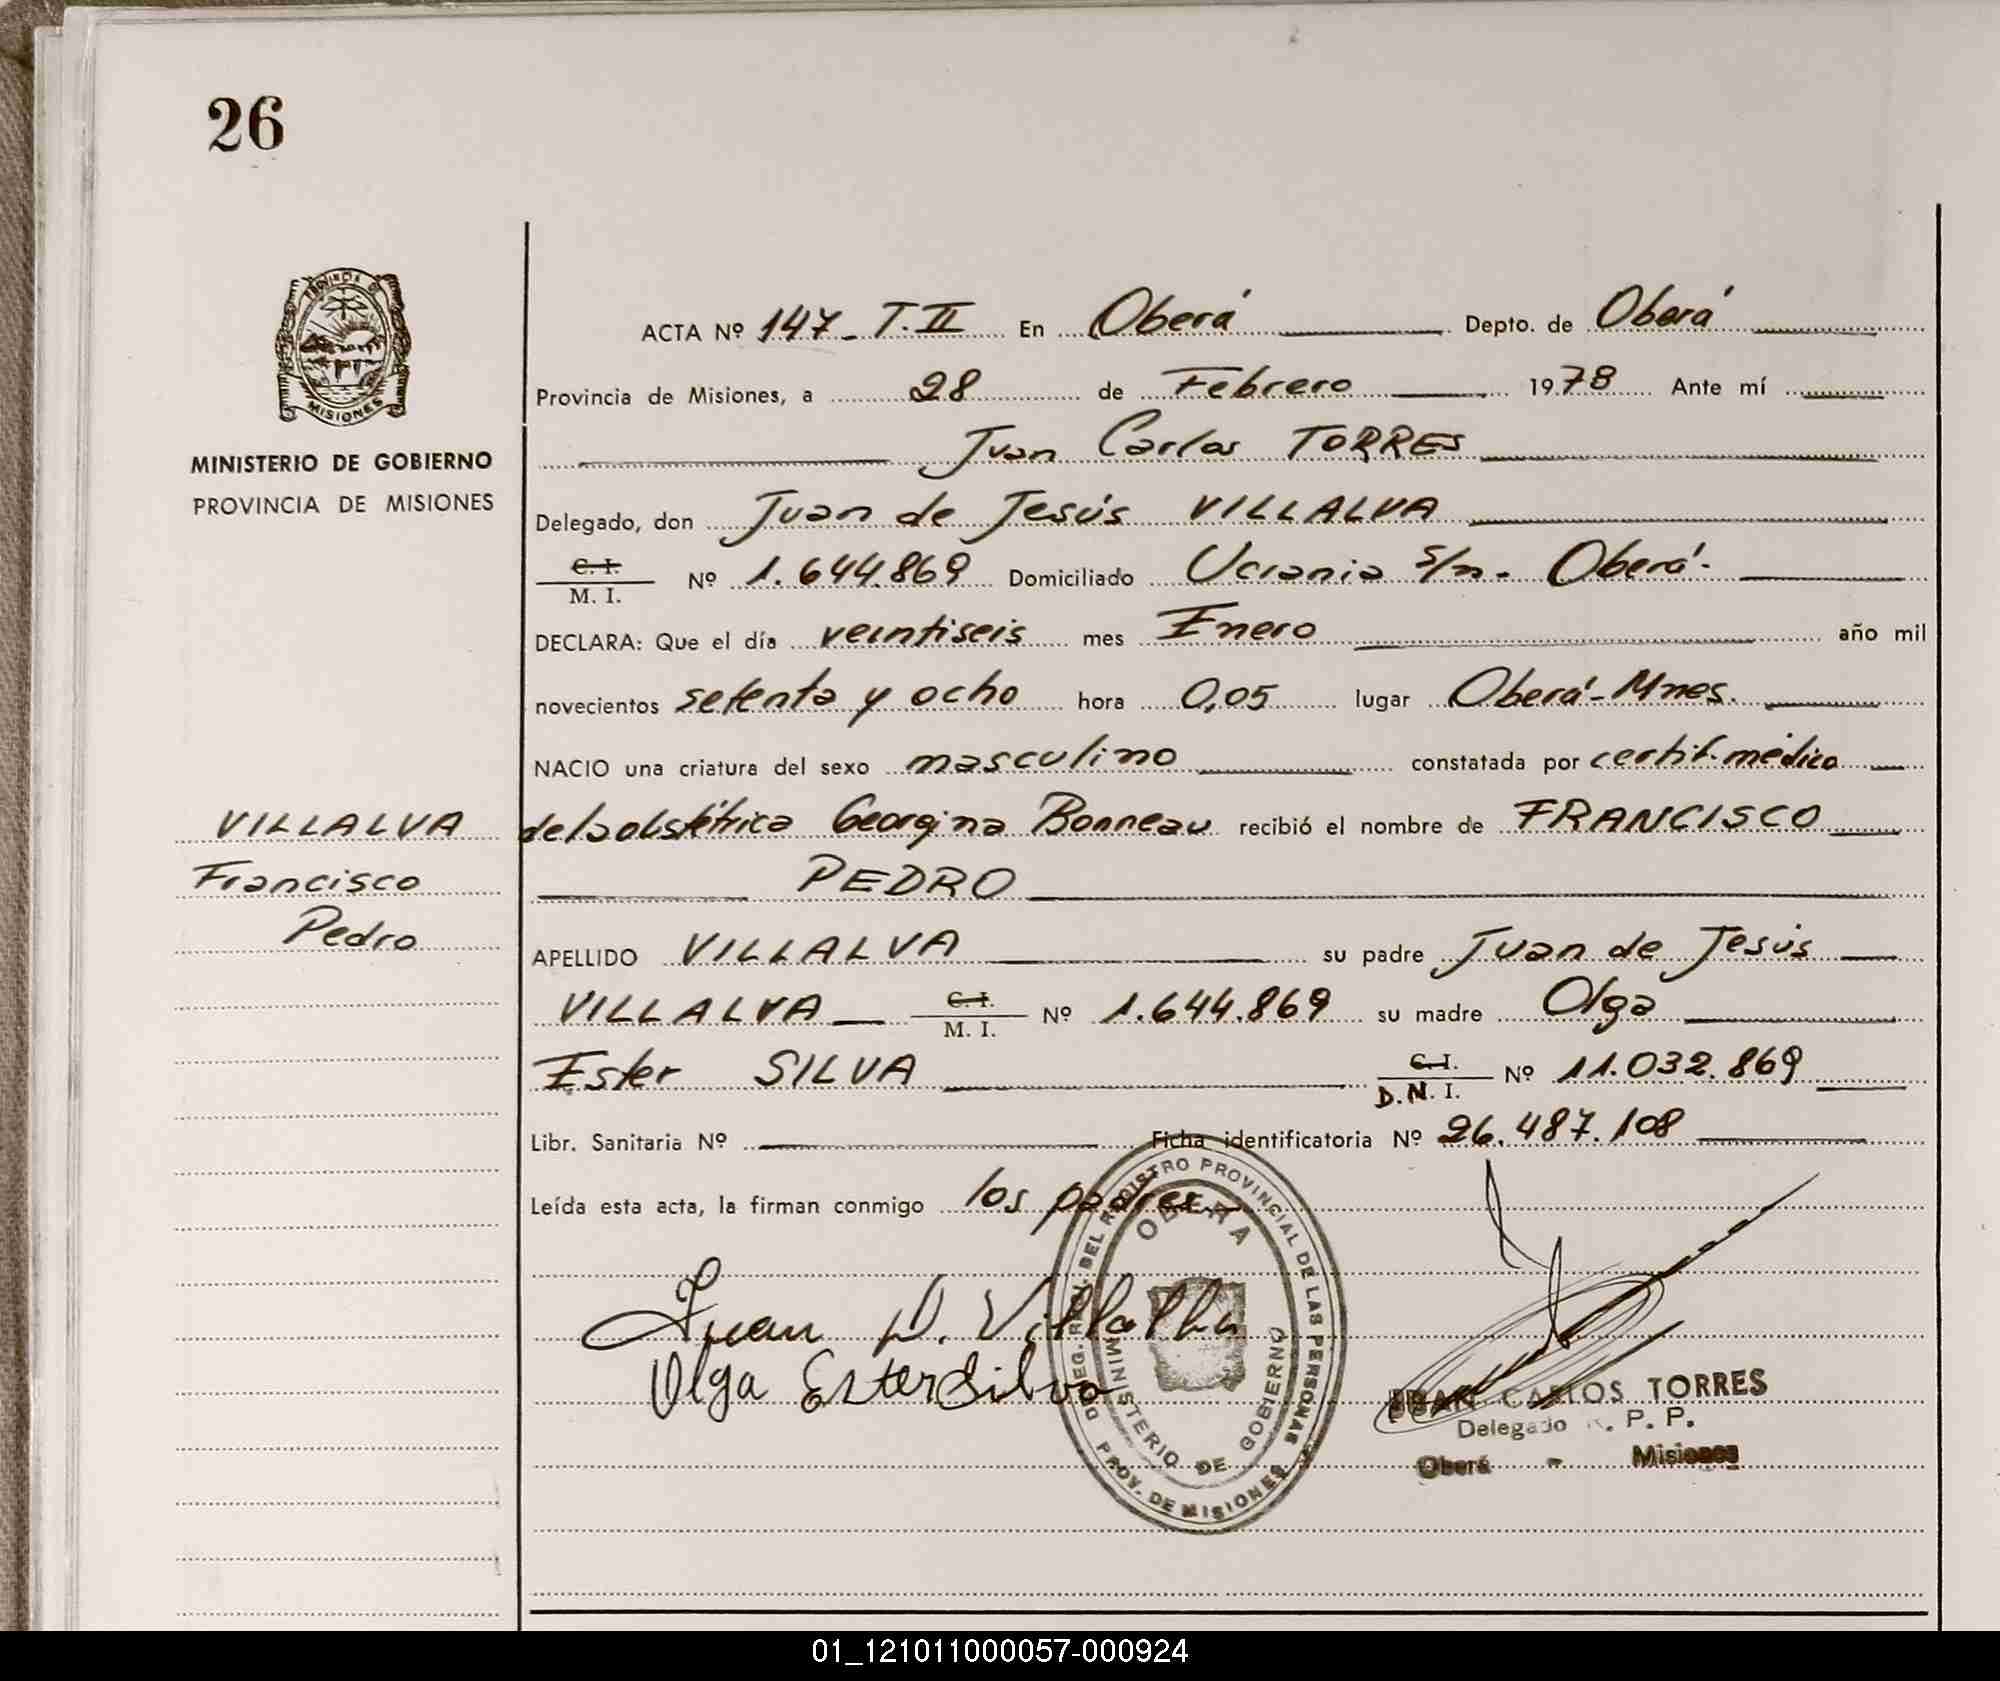 26
PROVINCIA DE
MISIONES
MINISTERIO DE GOBIERNO
PROVINCIA DE MISIONES
VILLALVA
Francisco
Pedro
ACTA Nº 147 - T. II En Oberá Depto. de Oberá
Provincia de Misiones, a 28 de Febrero 1978 Ante mí
Juan Carlos TORRES
Delegado, don Juan de Jesús VILLALVA
C. I.
M. I. Nº 1.644.869 Domiciliado Ucrania s/n - Oberá -
DECLARA: Que el día veintiseis mes Enero año mil
novecientos setenta y ocho hora 0,05 lugar Oberá - Mnes.
NACIO una criatura del sexo masculino constatada por certif. médico
de la obstétrica Georgina Bonneau recibió el nombre de FRANCISCO
PEDRO
APELLIDO VILLALVA su padre Juan de Jesús
VILLALVA C. I. M. I. Nº 1.644.869 su madre Olga
Ester SILVA C. I. D. N. I. Nº 11.032.869
Libr. Sanitaria Nº Ficha identificatoria Nº 26.487.108
Leída esta acta, la firman conmigo los padres
Juan D. Villalba
Olga Ester Silva
DELEG. REG. DEL REGISTRO PROVINCIAL DE LAS PERSONAS
PROV. DE MISIONES
OBERA
MINISTERIO DE GOBIERNO
JUAN CARLOS TORRES
Delegado R. P. P.
Oberá - Misiones
01_121011000057-000924